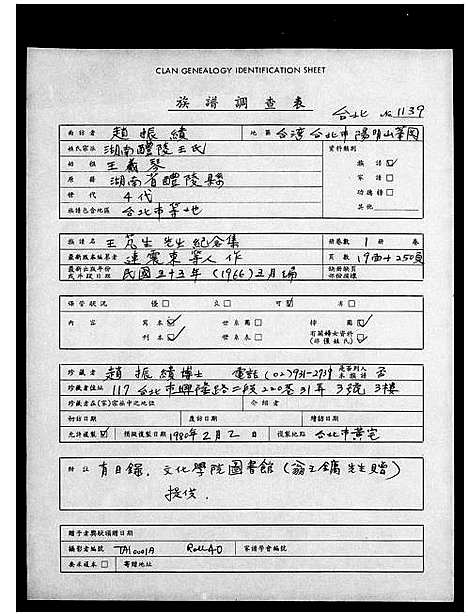 CLAN GENEALOGY IDENTIFICATION SHEET
族譜調查表
台北 No 1139
趙振績 地區 台灣台北市陽明山華岡
姓氏宗派 湖南醴陵王氏 資料類別
始祖 王義琴 族譜
原籍 湖南省醴陵縣 家譜
世代 4代 功德譜
族譜包含地區 台北市等地 其他
族譜名 王芃生先生紀念集 冊卷數 1 冊 卷
連震東等人作 頁數 19面+250頁
民國五十五年(1966)三月編
保管狀況 優 良 可 劣
內容 寫本 世系圖 像圖
刊本 世系表
珍藏者 趙振績博士 電話(02)931-2939 否
珍藏者住址 117台北市興隆路二段220巷31弄3號3樓
珍藏者在(家)宗派中之地位 介紹者
初訪日期 度訪日期 續訪日期
允許複製 預擬複製日期 1980年2月2日 複製地點 台北市黃宅
附註 有目錄. 文化學院圖書館(翁之鏞先生贈)
提供.
贈予者與版權贈日期
攝影者編號 TA1001A Roll 40 家譜學會編號
寄贈地址